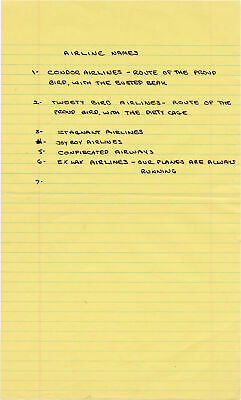 AIRLINE NAMES
1- CONDOR AIRLINES - ROUTE OF THE PROUD
BIRD, WITH THE BUSTED BEAK
2- TWEETY BIRD AIRLINES - ROUTE OF
THE PROUD BIRD, WITH THE DIRTY CAGE
3- STAGNANT AIRLINES
4- JOY BOY AIRLINES
5- CONFISCATED AIRWAYS
6- EX LAX AIRLINES - OUR PLANES ARE ALWAYS
RUNNING
7-